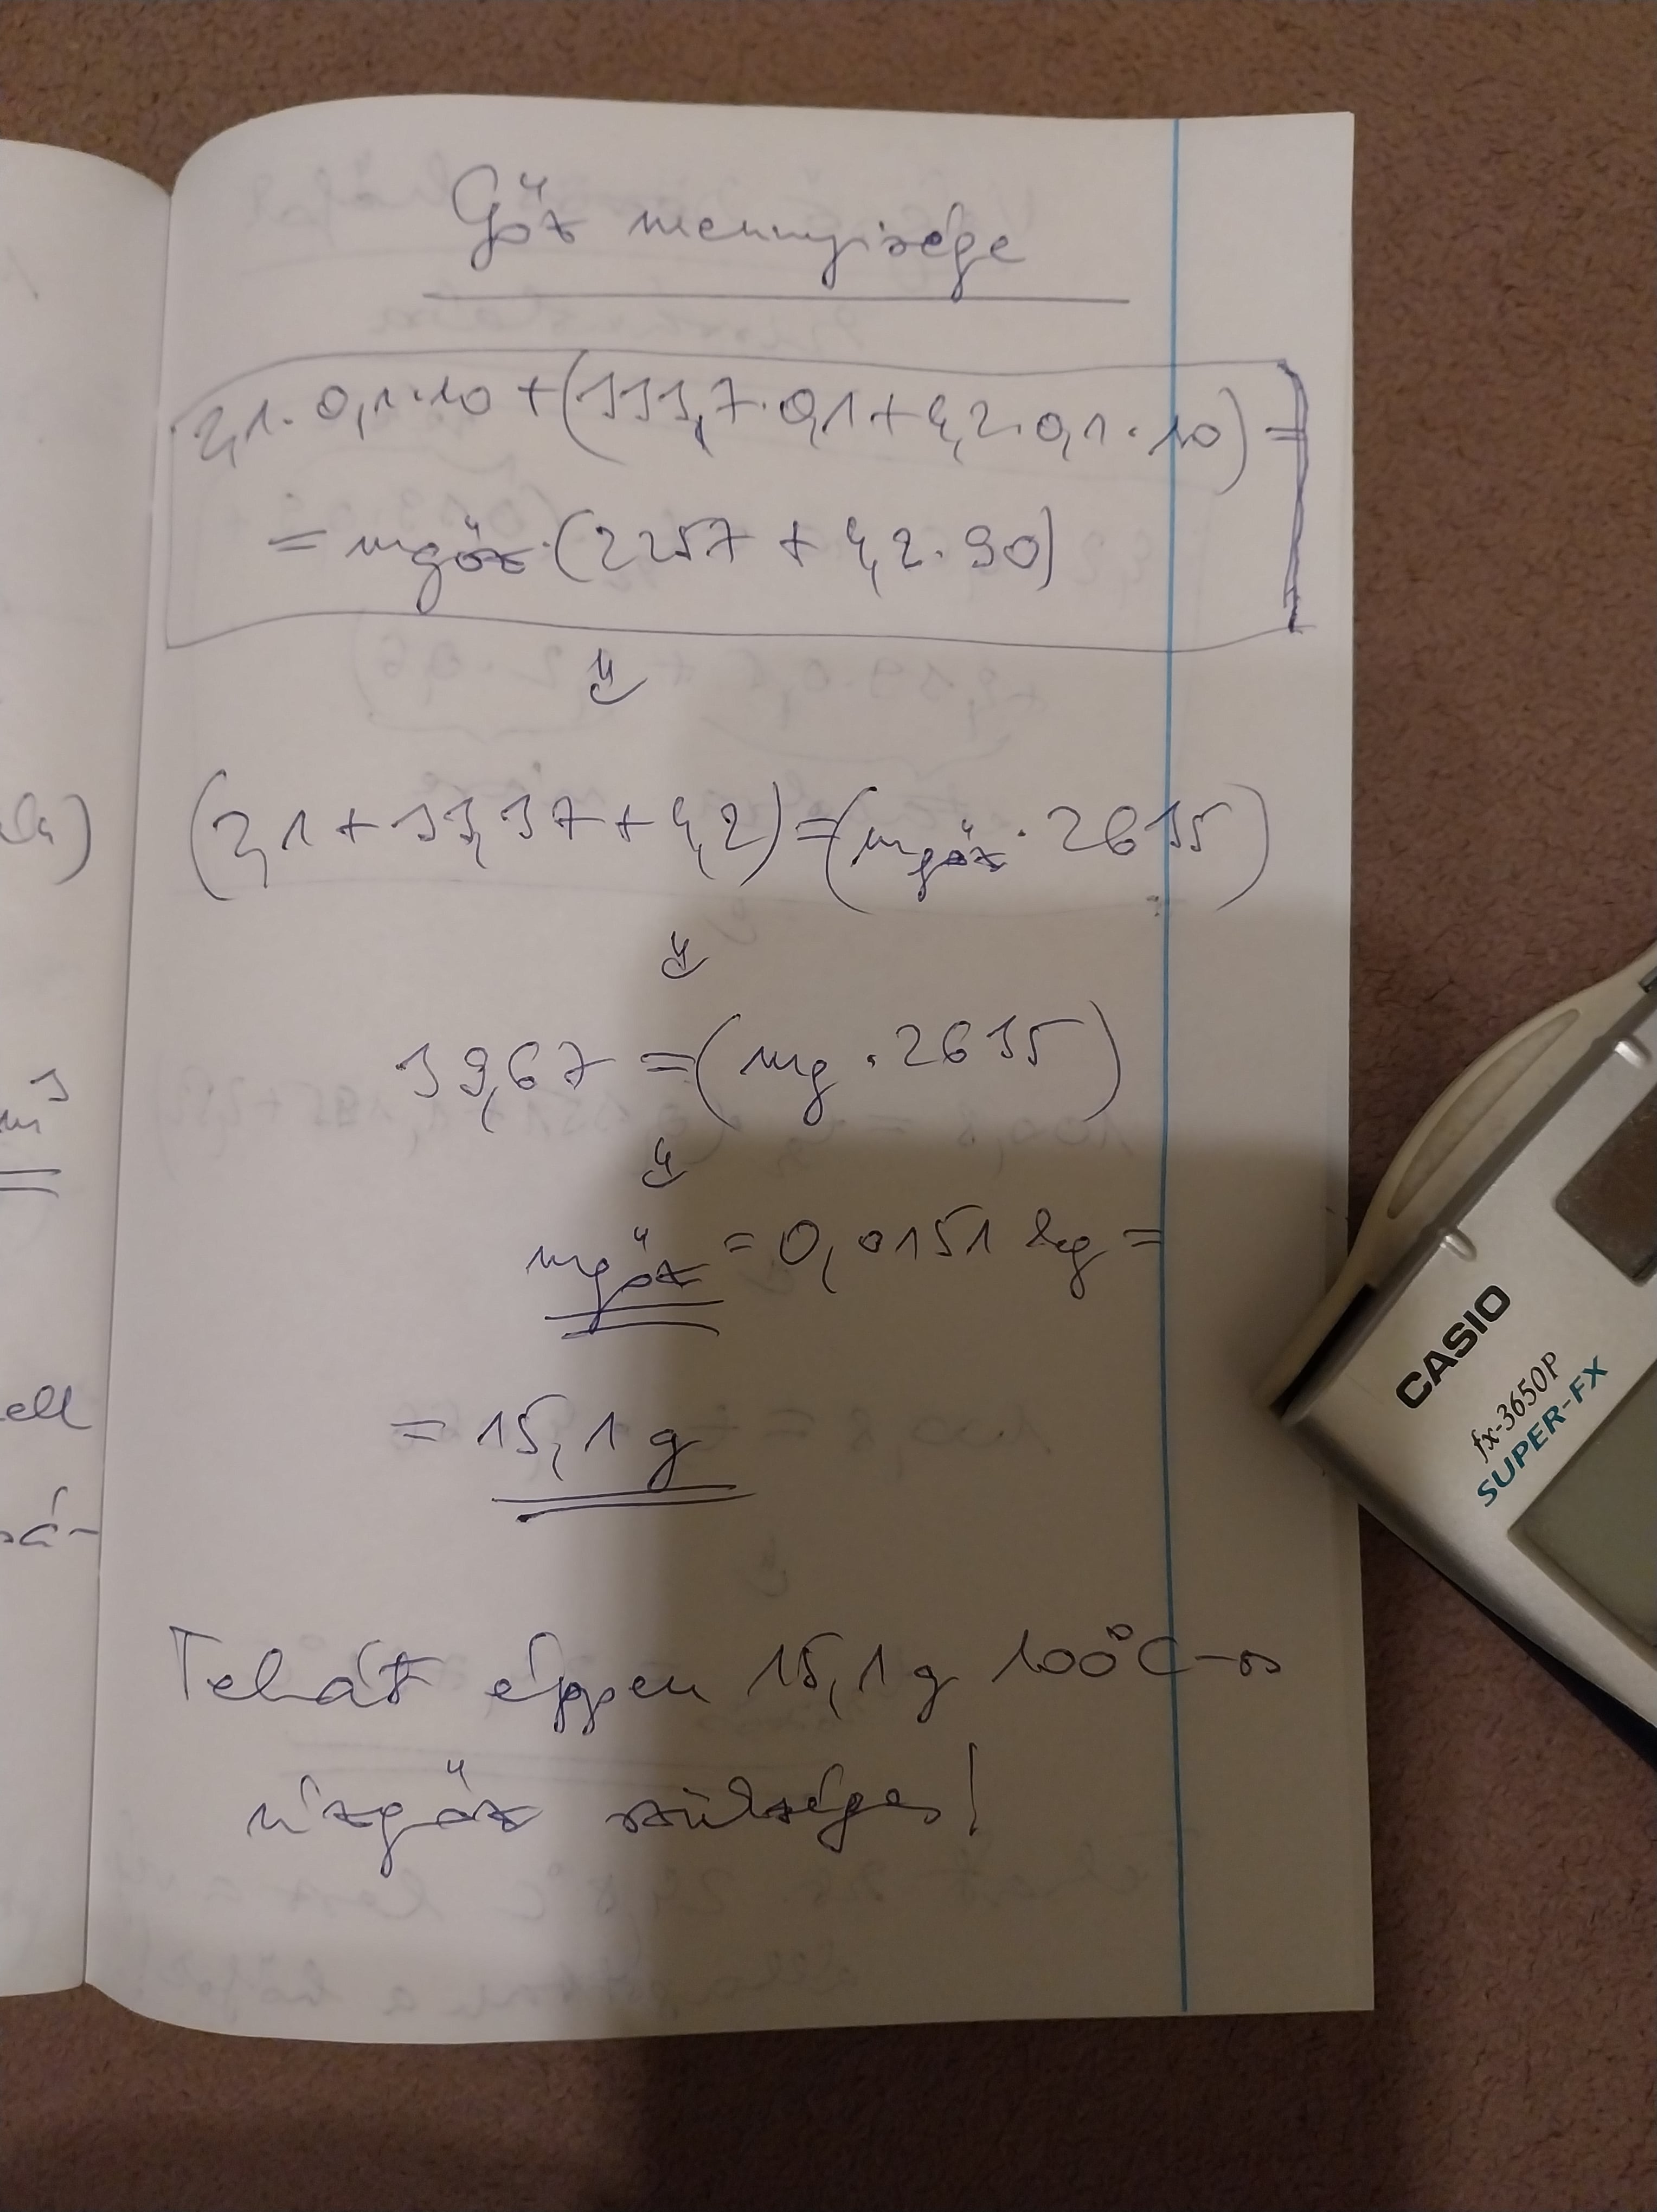 Gőz mennyisége
2,1 · 0,1 · 10 + (333,7 · 0,1 + 4,2 · 0,1 · 10) =
= mgőz · (2257 + 4,2 · 90)
⇓
(2,1 + 33,37 + 4,2) = (mgőz · 2635)
⇓
39,67 = (mg · 2635)
⇓
mgőz = 0,0151 kg =
= 15,1 g
Tehát éppen 15,1 g 100°C-os
vízgőz szükséges!
m³
ell
CASIO
fx-3650P
SUPER-FX